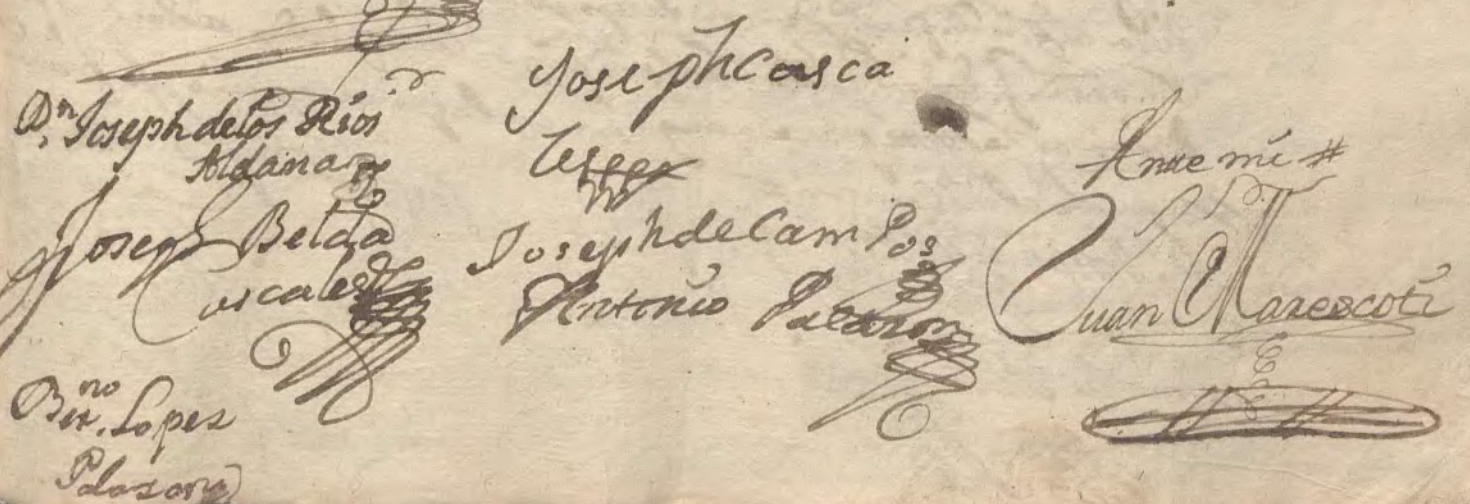 Dn Joseph de los Rios
Aldana
Joseph Belda
Cascales
Bernno Lopez
Joseph Casca
Joseph de Campos
Antonio
Ante mi
Juan Marescoti